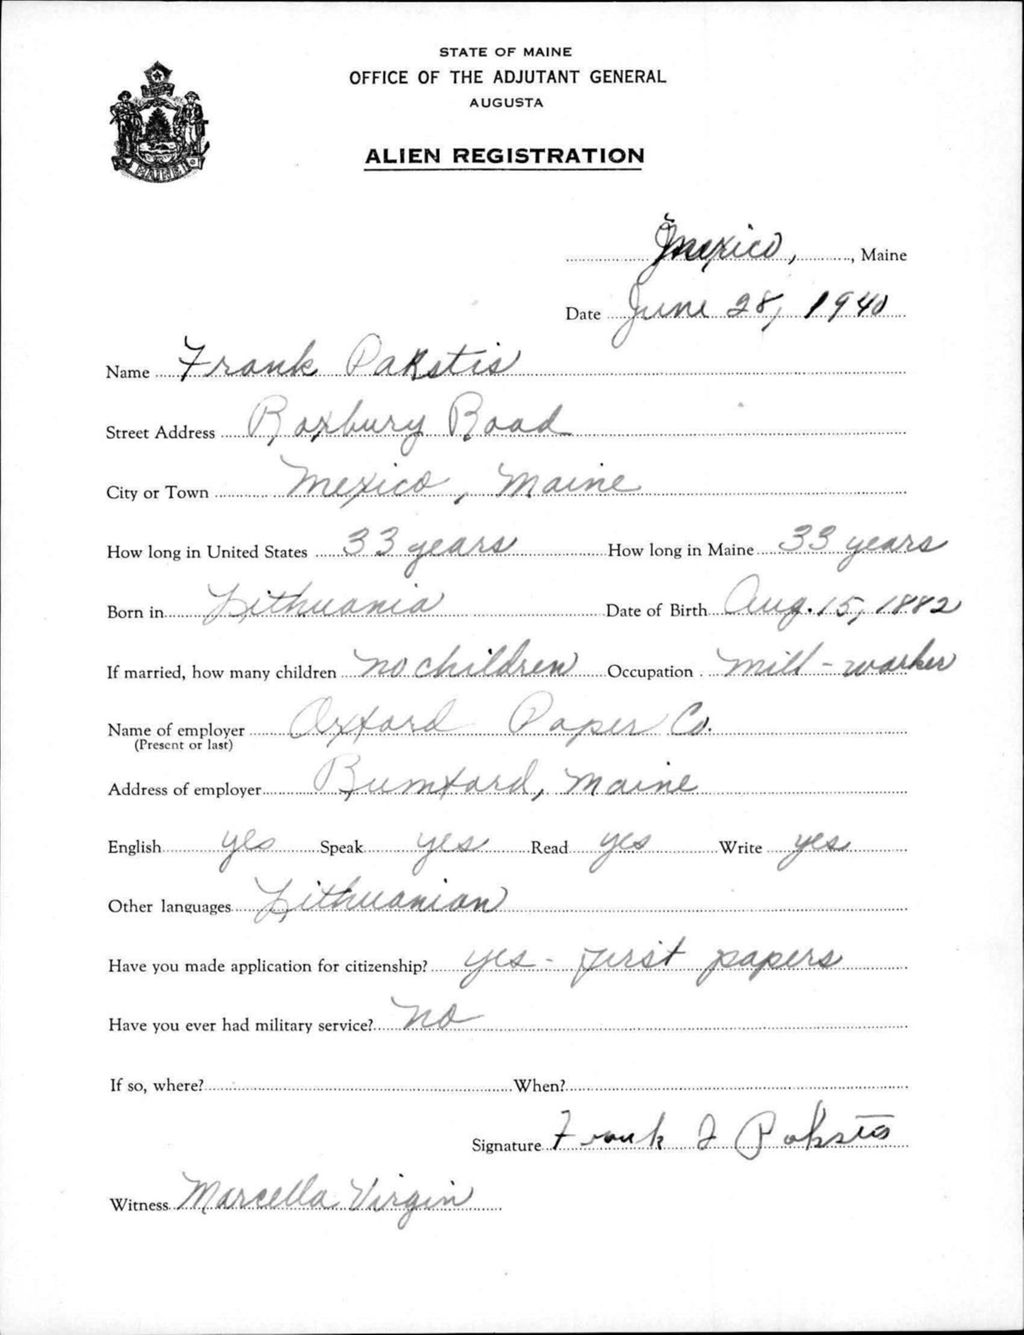 STATE OF MAINE
OFFICE OF THE ADJUTANT GENERAL
AUGUSTA
ALIEN REGISTRATION
Mexico, , Maine
Date June 28, 1940
Name Frank Pakstis
Street Address Roxbury Road
City or Town Mexico, Maine
How long in United States 33 years How long in Maine 33 years
Born in Lithuania Date of Birth Aug. 15, 1882
If married, how many children no children Occupation mill-worker
Name of employer Oxford Paper Co.
(Present or last)
Address of employer Rumford, Maine
English yes Speak yes Read yes Write yes
Other languages Lithuanian
Have you made application for citizenship? yes - first papers
Have you ever had military service? no
If so, where? When?
Signature Frank J Pakstis
Witness Marcella Virgin